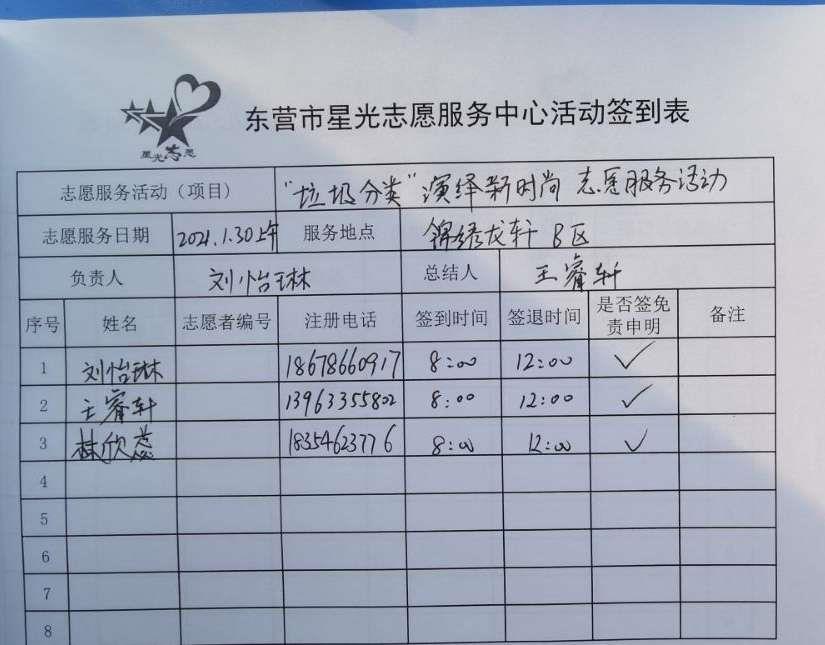 星光志愿
东营市星光志愿服务中心活动签到表
志愿服务活动（项目） "垃圾分类"演绎新时尚 志愿服务活动
志愿服务日期 2021.1.30上午 服务地点 锦绣龙轩 B区
负责人 刘怡琳 总结人 王睿轩
序号 姓名 志愿者编号 注册电话 签到时间 签退时间 是否签免责申明 备注
1 刘怡琳 18678660917 8:00 12:00 ✓
2 王睿轩 13963355802 8:00 12:00 ✓
3 林欣蕊 18354623776 8:00 12:00 ✓
4
5
6
7
8